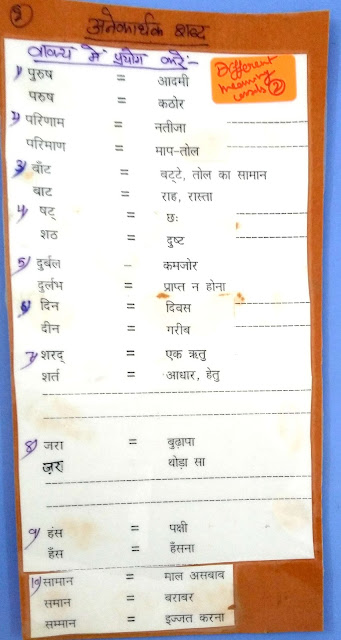 5
अनेकार्थक शब्द
वाक्य में प्रयोग करें:-
Different
meaning
words 2
1) पुरुष = आदमी
परुष = कठोर
2) परिणाम = नतीजा
परिमाण = माप-तोल
3) बाँट = बट्टे, तोल का सामान
बाट = राह, रास्ता
4) षट् = छः
शठ = दुष्ट
5) दुर्बल - कमजोर
दुर्लभ = प्राप्त न होना
6) दिन = दिवस
दीन = गरीब
7) शरद् = एक ऋतु
शर्त = आधार, हेतु
8) जरा = बुढ़ापा
ज़रा थोड़ा सा
9) हंस = पक्षी
हँस = हँसना
10) सामान = माल असबाब
समान = बराबर
सम्मान = इज्जत करना